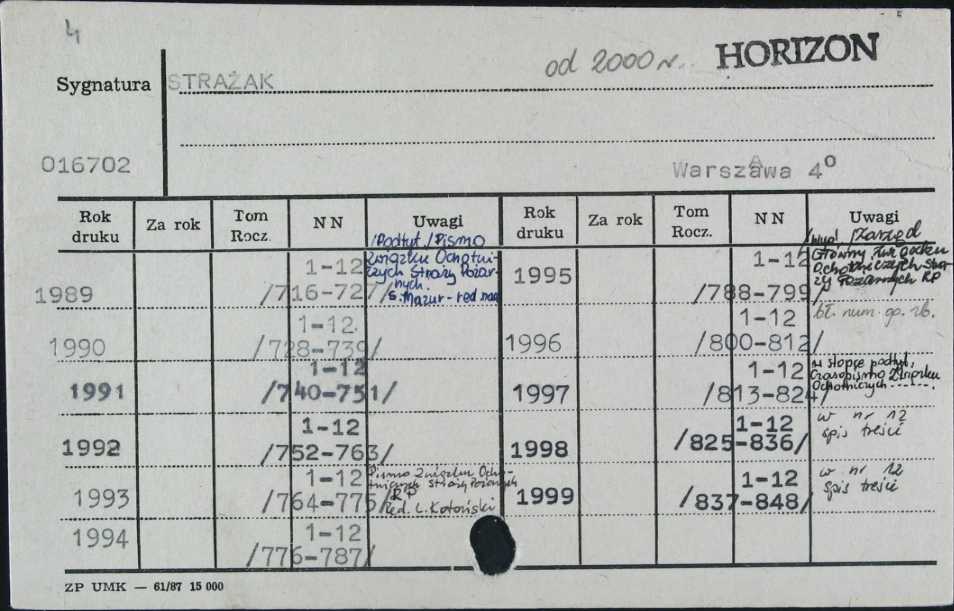 4
od 2000 r. HORIZON
Sygnatura STRAŻAK
016702
Warszawa 4°
Rok druku Za rok Tom Rocz. N N Uwagi Rok druku Za rok Tom Rocz. N N Uwagi
1989 1-12 /716-727/ /Podtyt./Pismo Związku Ochotni-czych Straży Pożar-nych. S. Mazur - red nacz
1990 1-12. /728-739/
1991 1-12 /740-751/
1992 1-12 /752-763/
1993 1-12 /764-775/ Pismo Związku Ocho-tniczych Straży Pożarnych RP Red. L. Kotoński
1994 1-12 /776-787/
1995 1-12 /788-799/ /Wyd./ Zarząd Główny Związku Ochotniczych Stra-ży Pożarnych RP
1996 1-12 /800-812/ bł. num. gp. zb.
1997 1-12 /813-824/ w stopce podtyt. Czasopismo Związku Ochotniczych
1998 1-12 /825-836/ w nr 12 spis treści
1999 1-12 /837-848/ w nr 12 spis treści
ZP UMK — 61/87 15 000